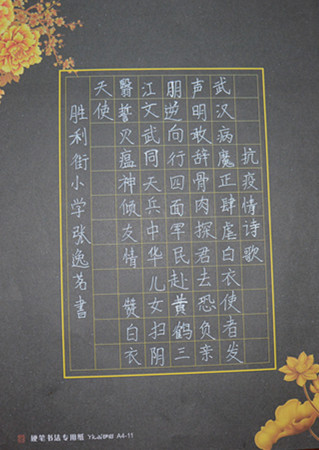 抗疫情诗歌
武汉病魔正肆虐白衣使者发
声明敢辞骨肉探君去恐负亲
朋逆向行四面军民赴黄鹤三
江文武同天兵中华儿女扫阴
翳誓灭瘟神倾友情 赞白衣
天使
胜利街小学张逸茗书
硬笔书法专用纸 A4-11